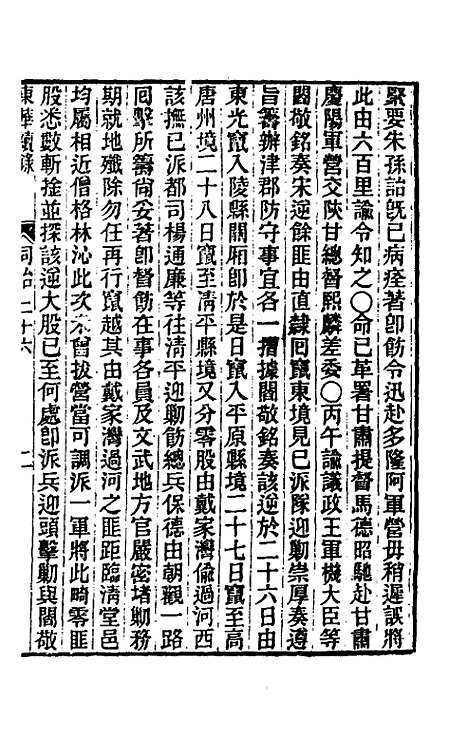 緊要朱孫詒旣已病痊著卽飭令迅赴多隆阿軍營毋稍遲誤將
此由六百里諭令知之○命已革署甘肅提督馬德昭馳赴甘肅
慶陽軍營交陝甘總督熙麟差委○丙午諭議政王軍機大臣等
閻敬銘奏宋逆餘匪由直隸回竄東境見已派隊迎勦崇厚奏遵
旨籌辦津郡防守事宜各一摺據閻敬銘奏該逆於二十六日由
東光竄入陵縣關厢卽於是日竄入平原縣境二十七日竄至高
唐州境二十八日竄至淸平縣境又分零股由戴家灣偸過河西
該撫已派都司楊通廉等往淸平迎勦飭總兵保德由朝觀一路
回擊所籌尙妥著卽督飭在事各員及文武地方官嚴密堵勦務
期就地殲除勿任再行竄越其由戴家灣過河之匪距臨淸堂邑
均屬相近僧格林沁此次未曾拔營當可調派一軍將此畸零匪
股悉數斬捦並探該逆大股已至何處卽派兵迎頭擊勦與閻敬
東華續錄 同治二十六 二